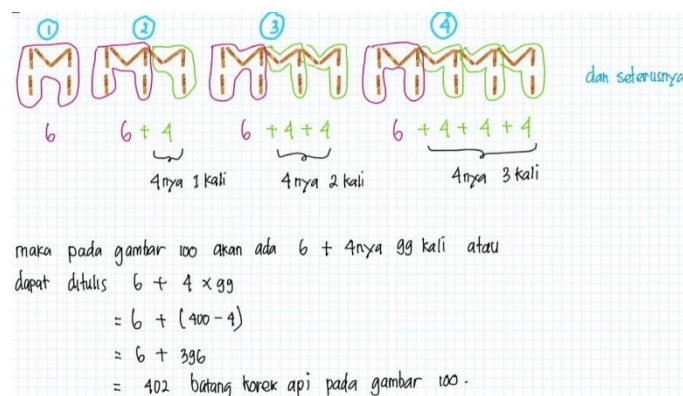 1 2 3 4
dan seterusnya
6 6 + 4 6 + 4 + 4 6 + 4 + 4 + 4
4nya 1 kali 4nya 2 kali 4nya 3 kali
maka pada gambar 100 akan ada 6 + 4nya 99 kali atau
dapat ditulis 6 + 4 × 99
= 6 + (400 - 4)
= 6 + 396
= 402 batang korek api pada gambar 100.